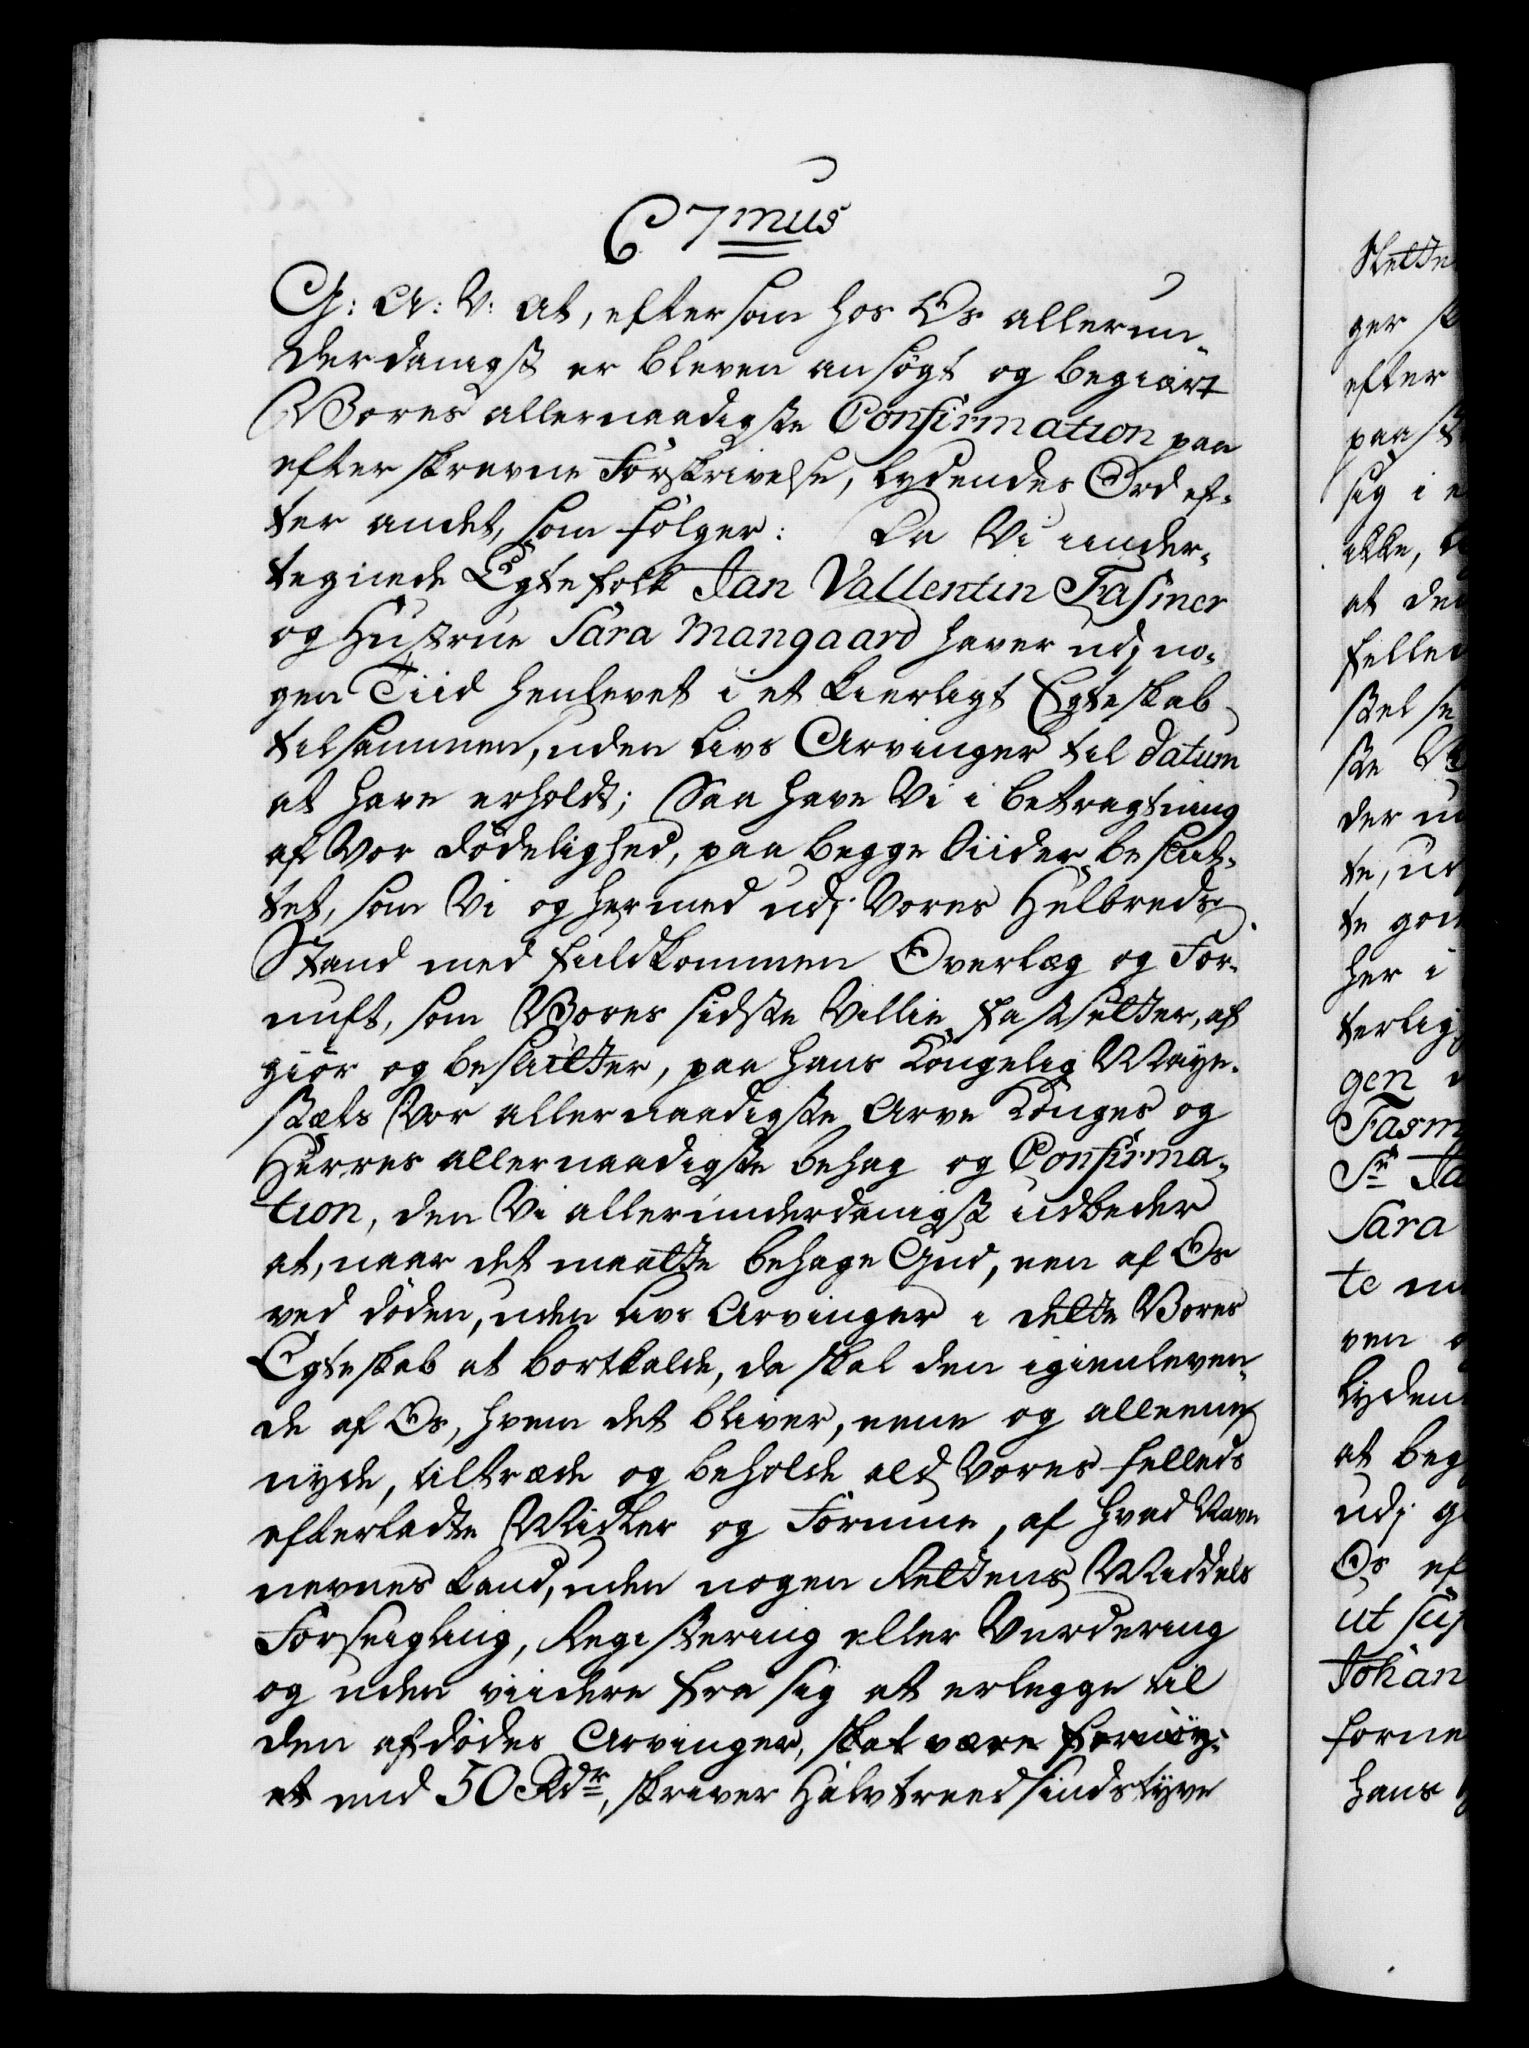 C 7mus
G: A: V: at, eftersom hos Os allerun-
derdanigst er bleven ansøgt og begiært
Vores allernaadigste Confirmation paa
efterskrevne Forskrivelse, lydendes Ord ef-
ter andet, som følger: Da Vi under-
tegnede Egtefolk Jan Vallentin Fasmer
og Hustrue Sara Mangaard haver udj no-
gen Tiid henlevet i et kierligt Egteskab
tilsammen, uden Livs Arvinger til datum
at have erholdt; Saa have Vi i betragtning
af Vor dødelighed, paa begge Siider beslut-
tet, som Vi og hermed udj Vores Helbreds
Stand med fuldkommen Overlæg og For-
nuft, som Vores sidste Villie fastsetter, af
giør og beslutter, paa hans Kongelig Maye-
stæts Vor allernaadigste Arve Konges og
Herres allernaadigste behag og Confirma-
tion, den Vi allerunderdanigst udbeder
at, naar det maatte behage Gud, een af Os
ved døden, uden Livs Arvinger i dette Vores
Egteskab at bortkalde, da skal den igienleven-
de af Os, hvem det bliver, eene og alleene
nyde, tiltræde og beholde ald Vores fælleds
efterladte Midler og Formue, af hvad Navn
nevnes kand, uden nogen Rettens Middels
Forseigling, Registering eller Vurdering
og uden viidere fra sig at erlegge til
den afdødes Arvinger, skal være fornøy-
et med 50 Rdr, skriver Halvtreedsindstyve
ger
efter
sig i
ikke,
at
der
te, ud
te
her i
gen
Fasm
Sr Ja
Sara
te
ven
lyden
at beg
udj
Os ef
ut sup
Johan
forne
hans